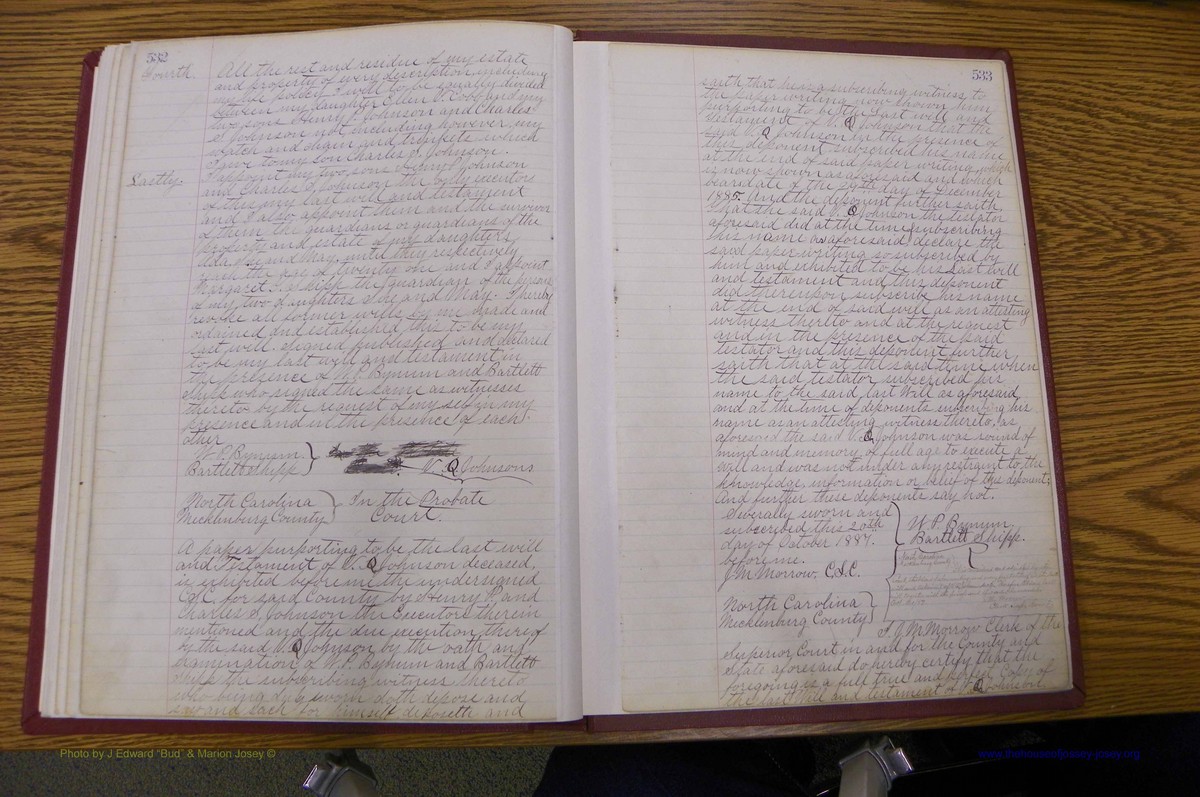 532
Fourth. All the rest and residue of my estate
and property of every description including
my life policy I will to be equally divided
between my daughter Ellen V. Cobb and my
two sons Henry P. Johnson and Charles
S. Johnson not including however my
watch and chain and trinkets which
I give to my son Charles S. Johnson.
Lastly. I appoint my two sons Henry P. Johnson
and Charles S. Johnson the Executors
of this my last will and testament
and I also appoint them and the survivor
of them the guardians or guardian of the
property and estate of my daughters
and May until they respectively
reach the age of twenty one and I appoint
Margaret Shipp the guardian of the person
of my two daughters and May. I hereby
revoke all former wills by me made and
ordained and established this to be my
last will. Signed published and declared
to be my last will and testament in
the presence of W. P. Bynum and Bartlett
Shipp who signed the same as witnesses
thereto by the request of my self in my
presence and in the presence of each
other
W. P. Bynum
Bartlett Shipp } V. Q. Johnson
North Carolina } In the Probate
Mecklenburg County } Court.
A paper purporting to be the last will
and Testament of V. Q. Johnson deceased,
is exhibited before me the undersigned
C.S.C. for said County by Henry P. and
Charles S. Johnson the Executors therein
mentioned and the due execution thereof
by the said V. Q. Johnson by the oath and
examination of W. P. Bynum and Bartlett
Shipp the subscribing witness thereto
who being duly sworn doth depose and
say and each for himself deposeth and
533
saith that he is a subscribing witness to
the paper writing now shown him
purporting to be the last will and
testament of V. Q. Johnson that the
said V. Q. Johnson in the presence of
this deponent subscribed his name
at the end of said paper writing which
is now shown as aforesaid and which
bears date of the 29th day of December
1885. And the deponent further saith
that the said V. Q. Johnson the testator
aforesaid did at the time subscribing
his name as aforesaid declare the
said paper writing so subscribed by
him and exhibited to be his last will
and testament and this deponent
did thereupon subscribe his name
at the end of said will as an attesting
witness thereto and at the request
and in the presence of the said
testator and this deponent further
saith that at the said time when
the said testator subscribed his
name to the said last Will as aforesaid
and at the time of deponents subscribing his
name as an attesting witness thereto, as
aforesaid the said V. Q. Johnson was sound of
mind and memory of full age to execute a
will and was not under any restraint to the
knowledge, information or belief of this deponent;
And further these deponents say not.
Severally sworn and
subscribed this 20th
day of October 1887.
before me.
J. M. Morrow, C.S.C.
W. P. Bynum
Bartlett Shipp.
North Carolina }
Mecklenburg County }
I, J. M. Morrow Clerk of the
Superior Court in and for the County and
State aforesaid do hereby certify that the
foregoing is a full true and perfect Copy of
the last Will and testament of V. Q. Johnson
Photo by J Edward "Bud" & Marion Josey ©
www.thehouseofjossey-josey.org